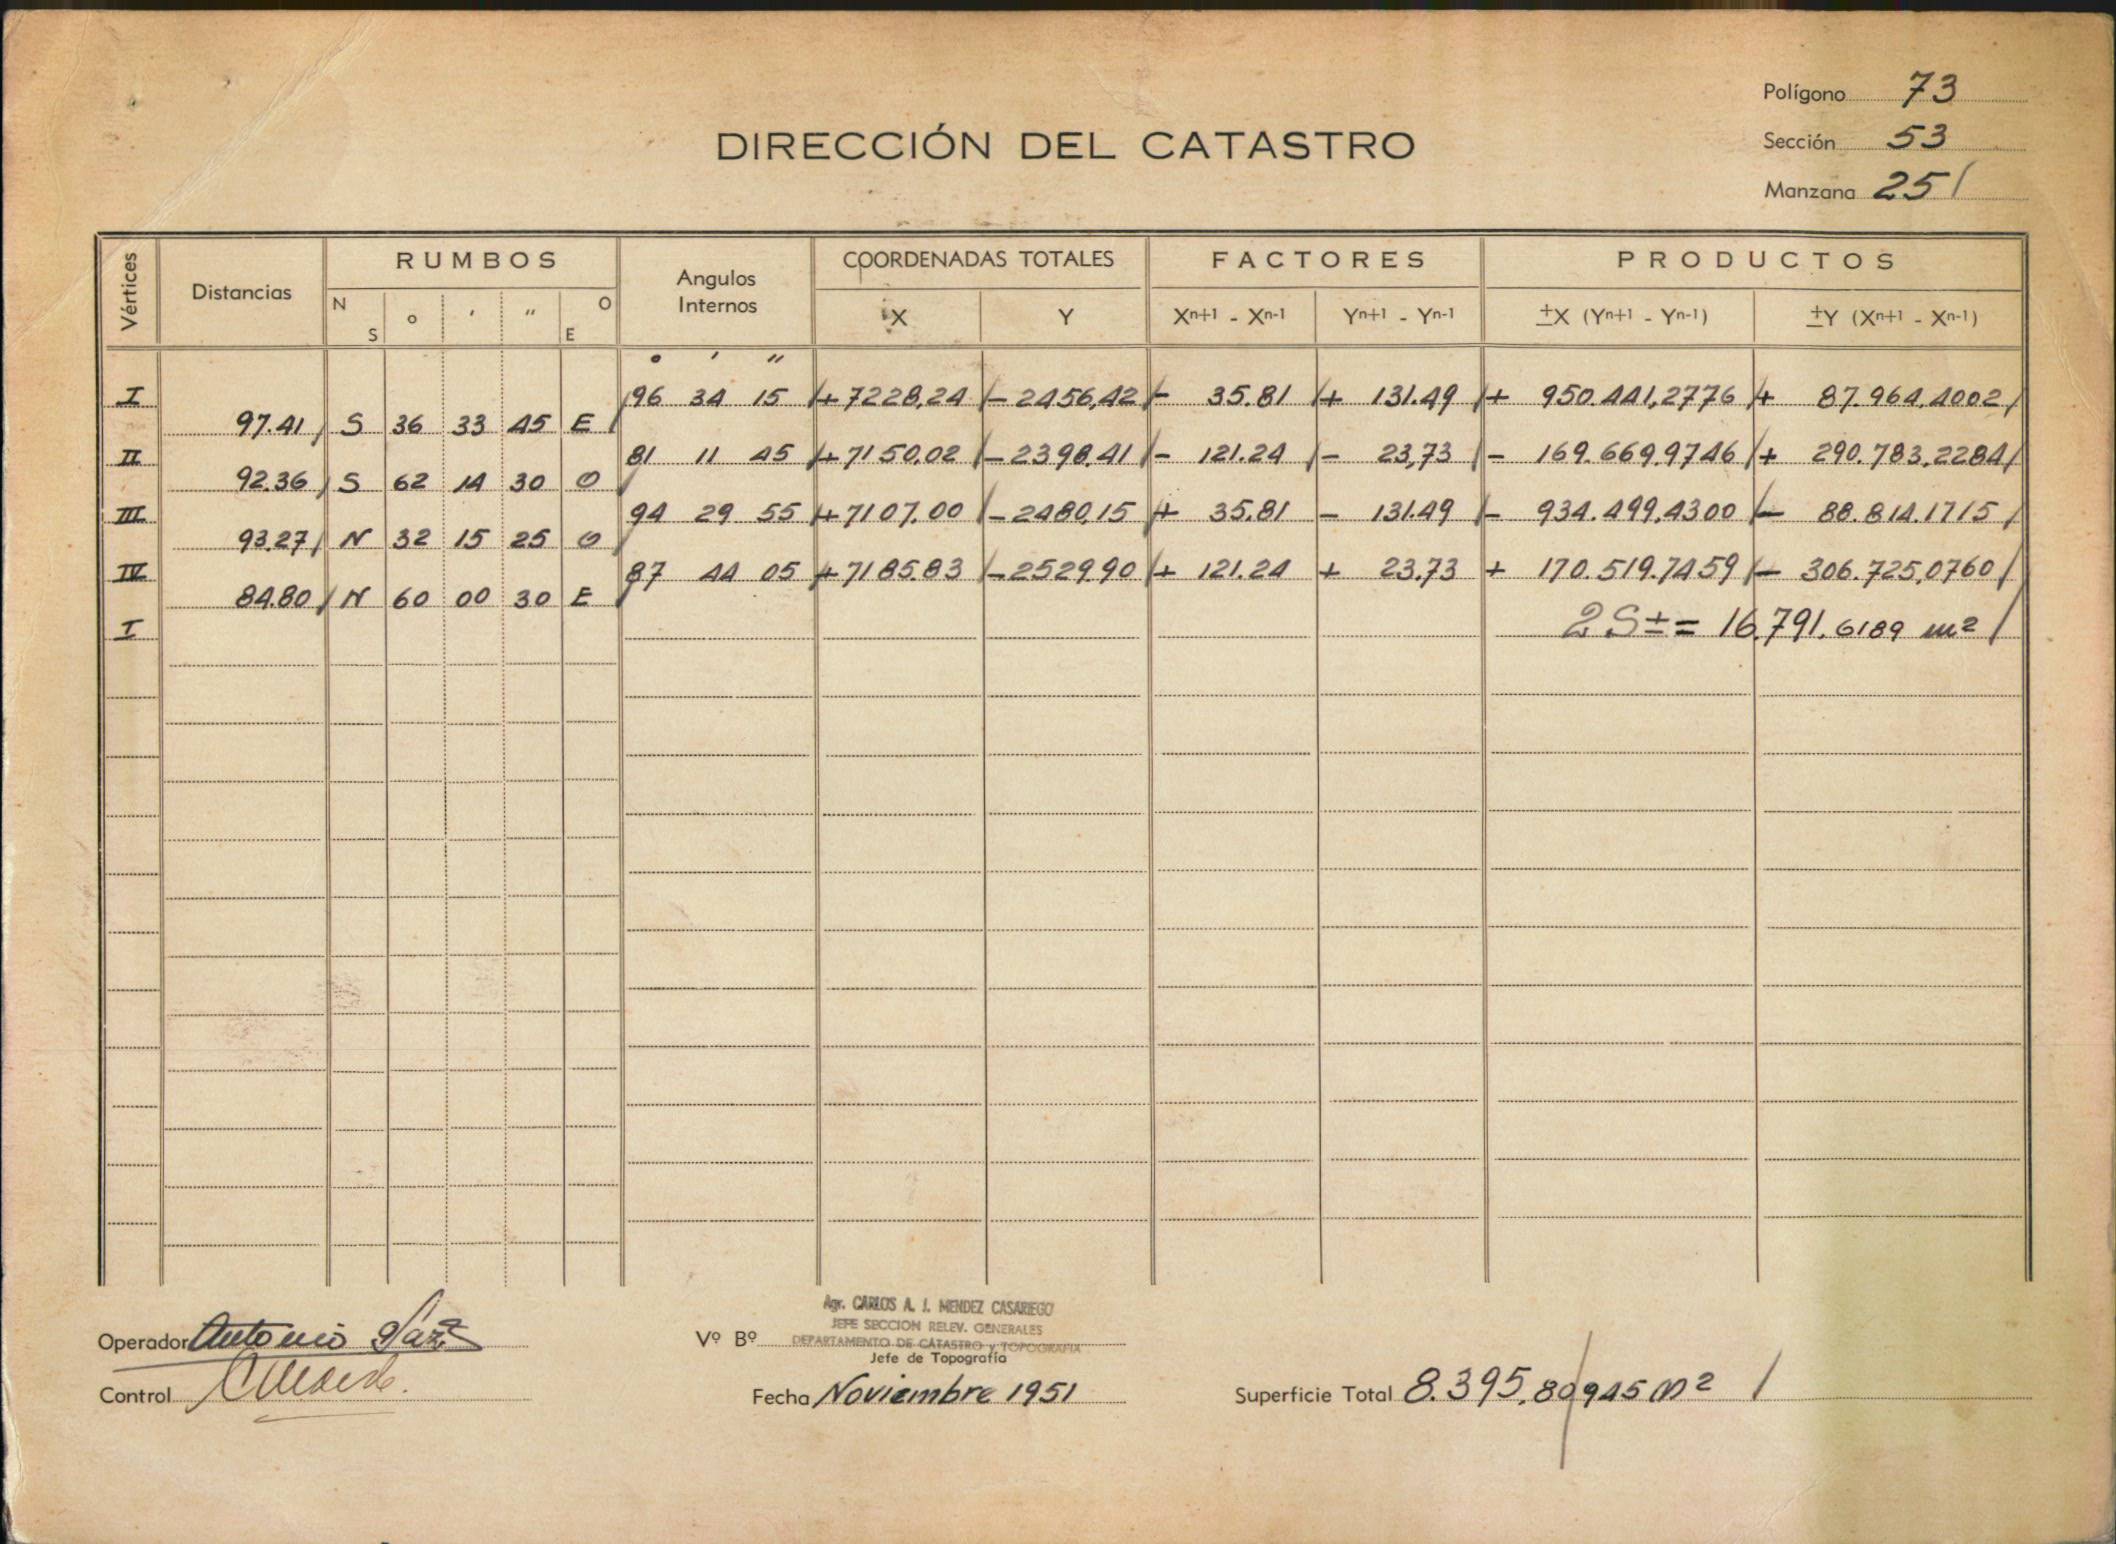 Polígono 73
DIRECCIÓN DEL CATASTRO
Sección 53
Manzana 251
Vértices Distancias RUMBOS Angulos Internos COORDENADAS TOTALES FACTORES PRODUCTOS
N S o ' '' O E X Y Xn+1 - Xn-1 Yn+1 - Yn-1 ±X (Yn+1 - Yn-1) ±Y (Xn+1 - Xn-1)
o ' ''
I 96 34 15 + 7228,24 - 2456,42 - 35.81 + 131.49 + 950.441,2776 + 87.964.4002
97.41 S 36 33 45 E
II 81 11 45 + 7150.02 - 2398.41 - 121.24 - 23,73 - 169.669.9746 + 290.783,2284
92.36 S 62 14 30 O
III 94 29 55 + 7107.00 - 2480.15 + 35.81 - 131.49 - 934.499.4300 - 88.814.1715
93.27 N 32 15 25 O
IV 87 44 05 + 7185.83 - 2529.90 + 121.24 + 23.73 + 170.519.7459 - 306.725,0760
84.80 N 60 00 30 E
I 2S± = 16.791.6189 m²
Agr. CARLOS A. J. MENDEZ CASARIEGO
JEFE SECCION RELEV. GENERALES
Operador Antonio
Vº Bº DEPARTAMENTO DE CATASTRO y TOPOGRAFIA
Jefe de Topografía
Control
Fecha Noviembre 1951
Superficie Total 8.395.80945 m²